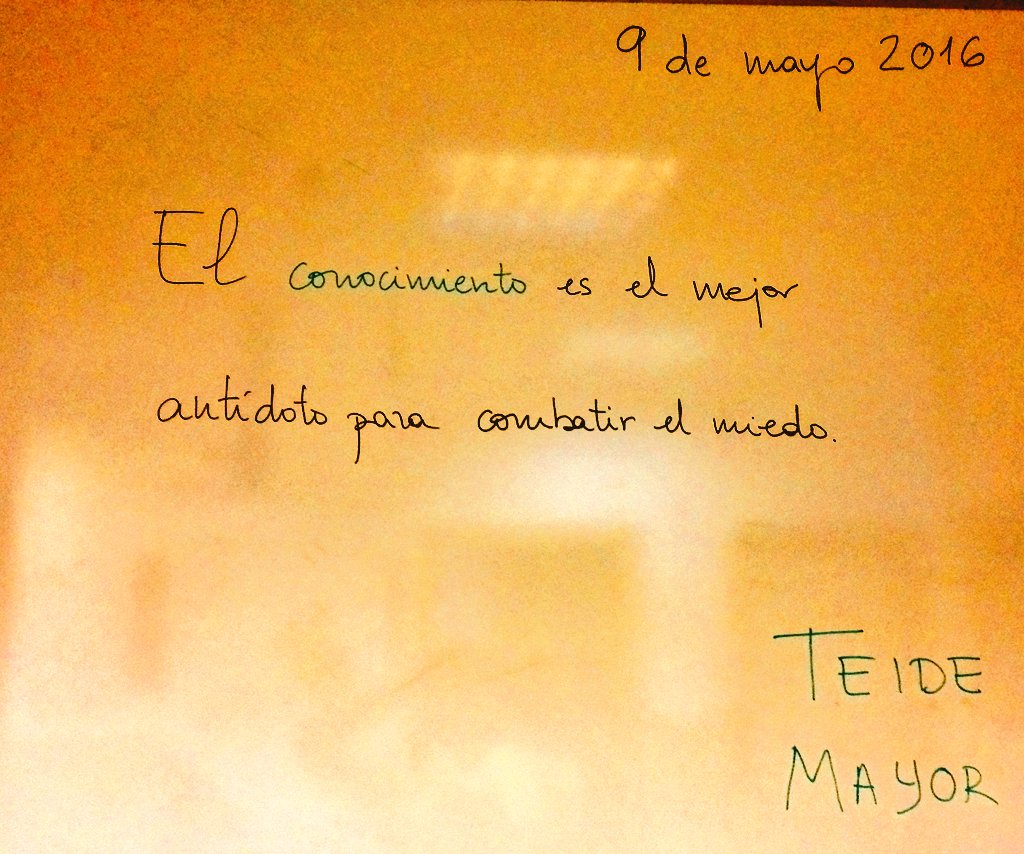 9 de mayo 2016
El conocimiento es el mejor
antídoto para combatir el miedo.
TEIDE
MAYOR